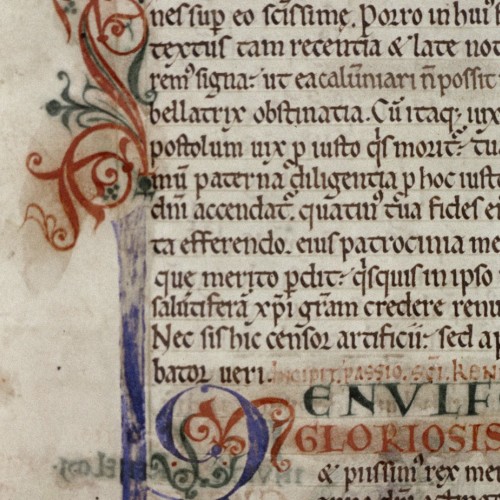 nes sup eo sc̄issime. Porro in hui᷒
textus tam recentia & late not
rem᷒ signa: ut ea calūniari n̄ possit
bellatrix obstinatia. Cū itaq; iux
postolum uix p̄ iusto q̇s morit̄: tu
mū paterna diligentia p hoc iust
dn̄i accendat̄. quatin᷒ tua fides ei
ta efferendo. eius patrocinia me
que merito pdit: q̇squis in ipso
salutiferā xp̄i gr̄am credere renu
Nec sis hic censor artificii: sed ap
bator ueri. Incipit passio sc̄i. KENE
ENVLF
GLORIOSIS
& piissim᷒ rex me